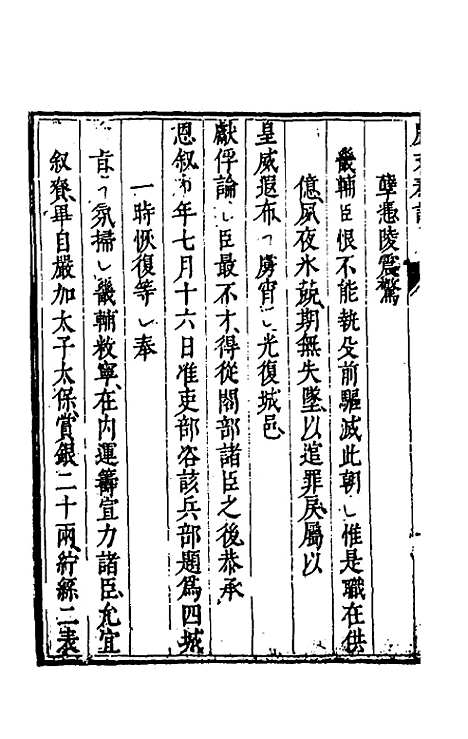 孽憑陵震驚
畿輔臣恨不能執殳前驅滅此朝乚惟是職在供
億夙夜氷兢期無失墜以逭罪戾屬以
皇威遐布乛虜宵乚光復城邑
獻俘論乚臣最不才得從閣部諸臣之後恭承
恩叙年七月十六日准吏部咨該兵部題爲四城
一時恢復等乚奉
㫖乛氛掃乚畿輔敉寧在内運籌宣力諸臣允宜
叙賚畢自嚴加太子太保賞銀二十兩紵絲二表